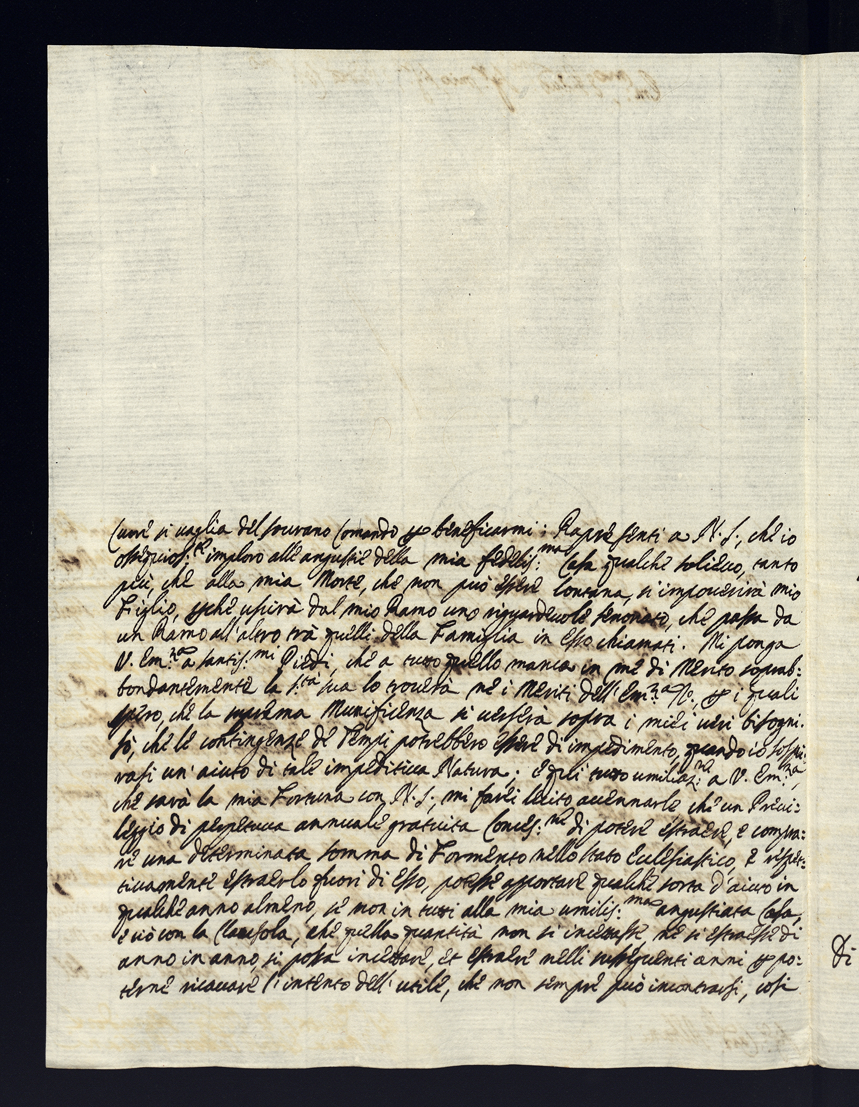 Cuore si vaglia del sourano Comando per beneficarmi: Rappresenti a N. S., che io
ossequios:te imploro all'angustie della mia fedelis:ma Casa qualche solieuo, tanto
più, che alla mia Morte, che non può essere lontana, si impouerirà mio
Figlio, perche uscirà dal mio Ramo uno riguardeuole senonato, che passa da
un Ramo all'altro trà quelli della Famiglia in esso chiamati. Mi ponga
V. Em:za a santis:mi Piedi, che a tutto quello manca in me di Merito soprab:
bondantemente la S:tà sua lo trouerà ne i Meriti dell'Em:za Vo, per i quali
spero, che la suprema Munificienza si uerserà sopra i miei ueri bisogni.
Sò, che le contingenze de Tempi potrebbero essere di impedimento, quando io sospi:
rasi un'aiuto di tale impeditiua Natura; e quì tutto umilias: a V. Em:za,
che sarà la mia Fortuna con N. S., mi farei lecito accennarle che un Priui:
leggio di perpetua annuale gratuita Conces:ne di potere estraere, e compra:
re una determinata somma di Formento nello stato Eclesiastico, e rispet:
tiuamente estraerlo fuori di Esso, potesse apportare qualche sorta d'aiuto in
qualche anno almeno, se non in tutti alla mia umilis:ma angustiata Casa,
e ciò con la Clausola, che quella quantità non si incettasse, ne si estraesse di
anno in anno, si possa incettare, et estraere nelli susseguenti anni per po:
terne ricauare l'intento dell'utile, che non sempre può incontrarsi, così
Di